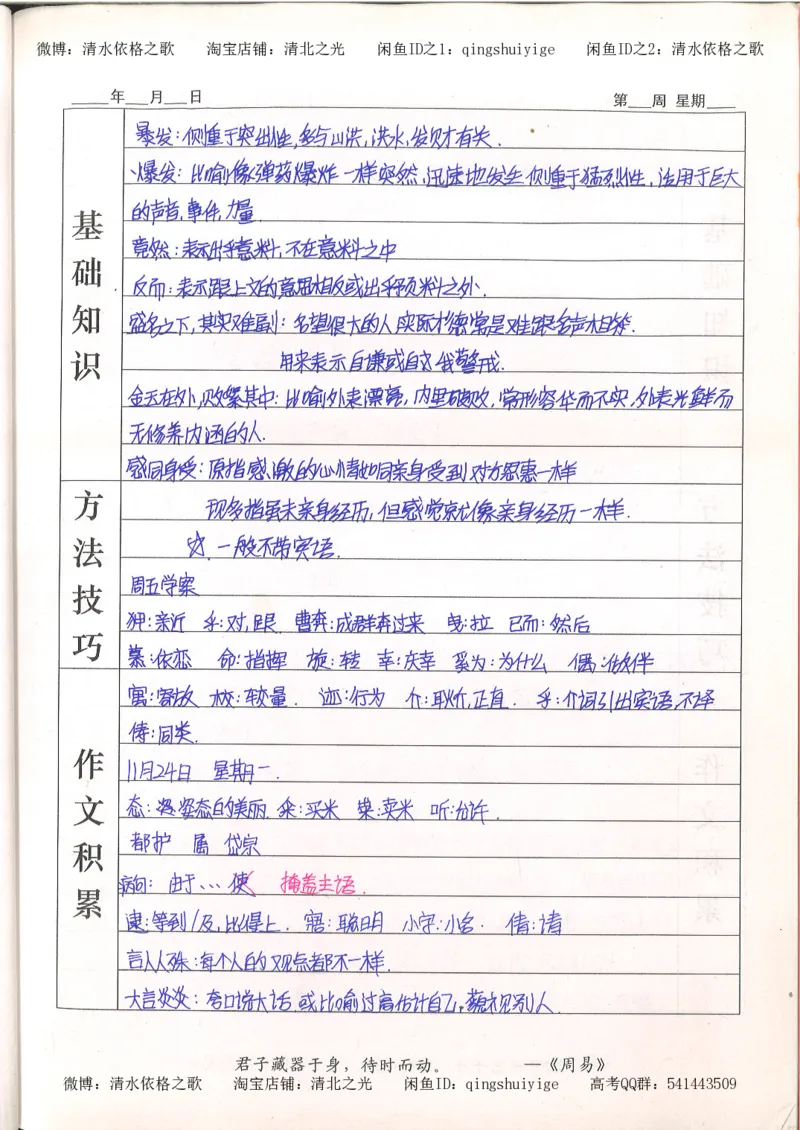 微博：清水依格之歌 淘宝店铺：清北之光 闲鱼ID之1：qingshuiyige 闲鱼ID之2：清水依格之歌
年 月 日 第 周 星期
基础知识
暴发：侧重于突出性，多与山洪，洪水，发财才有关．
爆发：比喻像弹药爆炸一样突然，迅速地发生 侧重于猛烈性，适用于巨大
的声音，事件，力量．
竟然：表示出乎意料，不在意料之中
反而：表示跟上文的意思相反或出乎预料之外．
盛名之下，其实难副：名望很大的人实际才德常是难跟名声相符．
用来表示自谦或自我警戒．
金玉在外，败絮其中：比喻外表漂亮，内里破败，常形容华而不实，外表光鲜而
无修养内涵的人．
感同身受：原指感激的心情如同亲身受到对方恩惠一样
方法技巧
现多指虽未亲身经历，但感觉就像亲身经历一样．
一般不带宾语．
周五学案
狎：亲近 乎：对，跟 曹奔：成群奔过来 曳：拉 已而：然后
慕：依恋 命：指挥 旋：转 幸：庆幸 奚为：为什么 偶：做伴
寓：寄放 校：较量． 迹：行为 介：耿介，正直． 乎：介词引出宾语，不译
俦：同类．
作文积累
11月24日 星期一．
态：姿态的美丽． 籴：买米 粜：卖米 听：允许．
都护 属 岱宗
病句：由于…使 掩盖主语．
逮：等到/及，比得上． 寤：聪明 小字：小名． 倩：请
言人人殊：每个人的观点都不一样．
大言炎炎：夸口说大话，或比喻过高估计自己，藐视别人．
君子藏器于身，待时而动。 —《周易》
微博：清水依格之歌 淘宝店铺：清北之光 闲鱼ID：qingshuiyige 高考QQ群：541443509